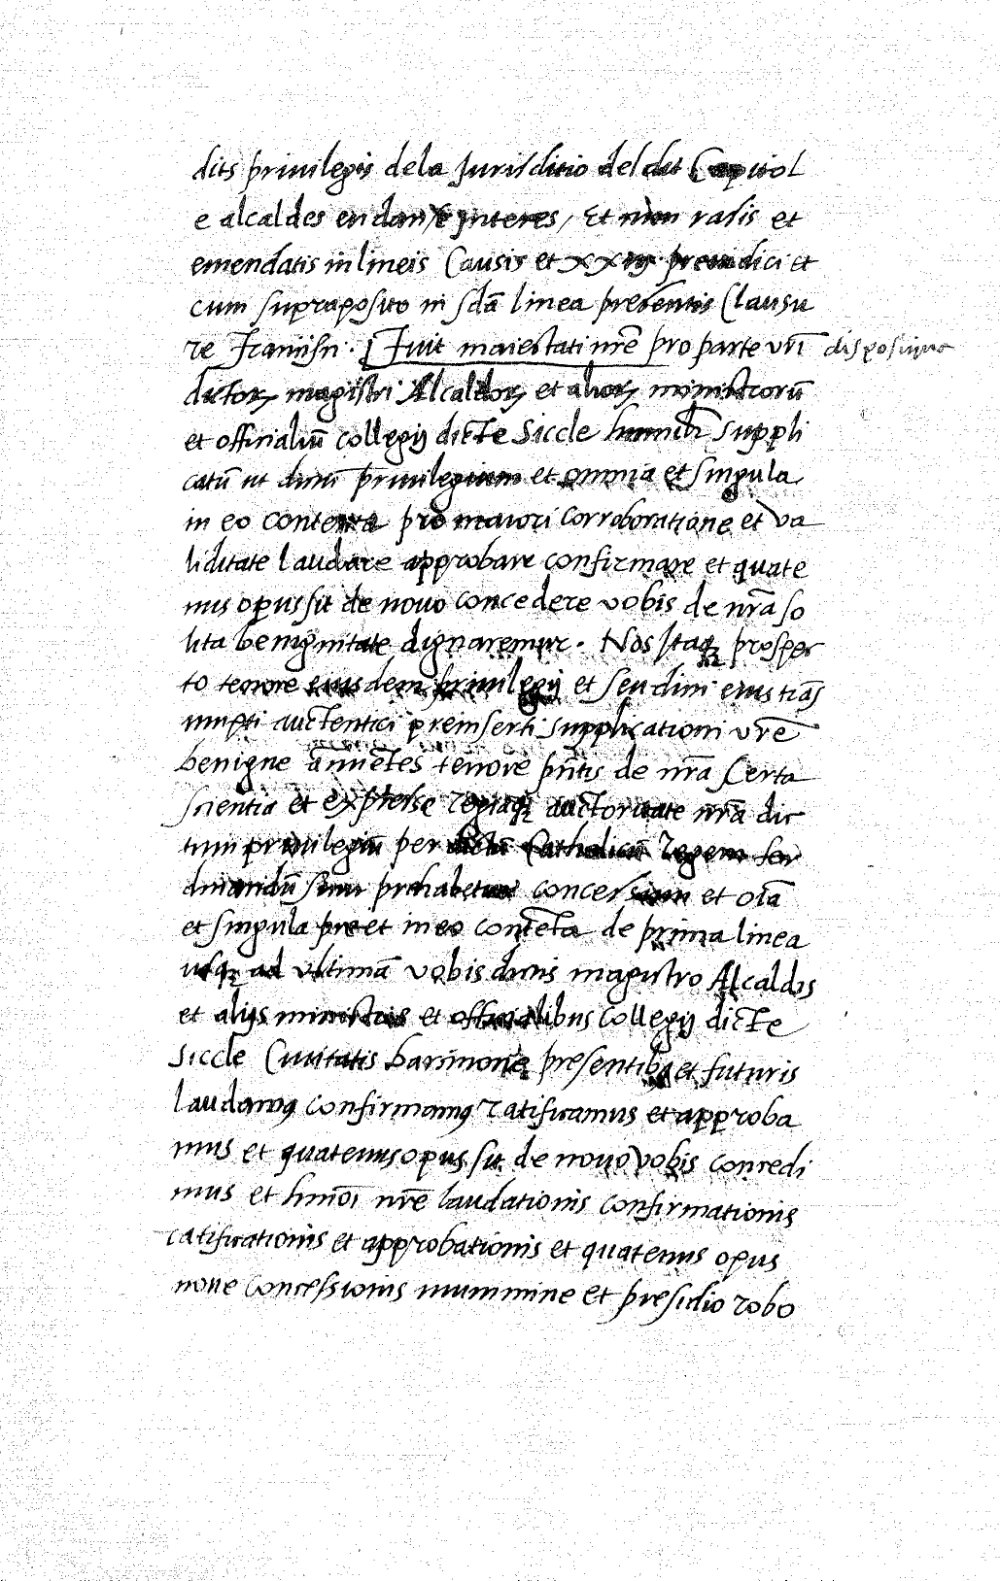 dits priuilegis dela Jurisditio del dit Capitol
e alcaldes en dany e interes, Et non rasis et
emendatis in lineis Causis et xxiij dici et
cum supraposito in sdā linea presentis Clausu
re Franisn. Fuit maiestati nrē pro parte vrī disposiiua
dictoꝝ magistri Alcaldoꝝ et alioꝝ ministrorū
et officialiū collegij dictē Siccle humilr suppli
catū ut dictū priuilegium et omnia et singula
in eo contenta pro maiori corroboratione et va
liditate laudare approbare confirmare et quate
nus opus sit de nouo concedere vobis de nrā so
lita benignitate dignaremur. Nos Itaqꝫ prospec
to tenore eiusdem priuilegij et seu dicti eius trās
umpti auctentici preinserti supplicationi vrē
benigne ānuētes tenore pn̄tis de nrā Certa
scientia et expresse regiaqꝫ auctoritate nrā dic
tum priuilegiū per dictū Catholicū Regem fer
dinandū sicut prehabetur concessum et oīa
et singula pret in eo contēta de prima linea
usqꝫ ad vltimā vobis dictis magistro Alcaldis
et alijs ministris et officialibus collegij dictē
Siccle Ciuitatis barcinone presentibꝫ et futuris
laudamꝰ confirmamꝰ ratificamus et approba
mus et quatenus opus sit de nouo vobis concedi
mus et hmōi nrē laudationis confirmationis
ratificationis et approbationis et quatenus opus
noue concessionis munimine et presidio robo